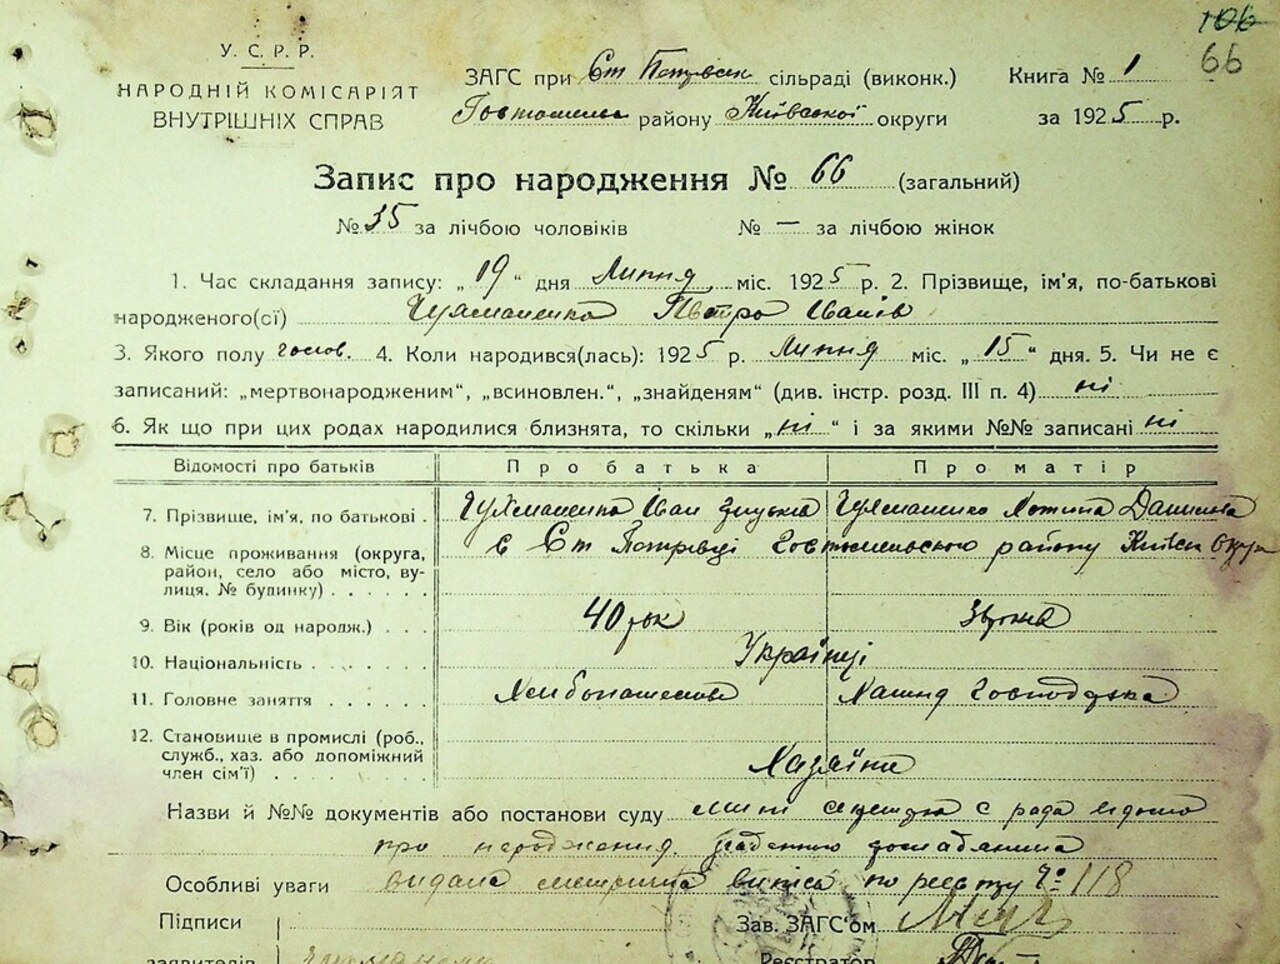 106
66
У. С. Р. Р.
НАРОДНІЙ КОМІСАРІЯТ
ВНУТРІШНІХ СПРАВ
ЗАГС при Ст сільраді (виконк.)
району Київської округи
Книга № 1
за 1925 р.
Запис про народження № 66 (загальний)
№ 35 за лічбою чоловіків № — за лічбою жінок
1. Час складання запису: „ 19 “ дня Липня міс. 1925 р. 2. Прізвище, ім'я, по-батькові
народженого(сї) Петро Іванів
3. Якого полу чолов. 4. Коли народився(лась): 1925 р. Липня міс. „ 15 “ дня. 5. Чи не є
записаний: „мертвонародженим“, „всиновлен.“, „знайденям“ (див. інстр. розд. III п. 4) ні
6. Як що при цих родах народилися близнята, то скільки „ ні “ і за якими №№ записані ні
Відомості про батьків Про батька Про матір
7. Прізвище, ім'я, по батькові . Іван
8. Місце проживання (округа, район, село або місто, вулиця, № будинку) . . . . . . с Ст Петрівці району Київск
9. Вік (років од народж.) . . . 40 рок
10. Національність . . . . . . Українці
11. Головне заняття . . . . . .
12. Становище в промислі (роб., служб., хаз. або допоміжний член сім'ї) . . . . . . . .
Назви й №№ документів або постанови суду
про народження
Особливі уваги видана метрична випись по реєстру № 118
Підписи
заявителів
Зав. ЗАГС'ом
Реєстратор